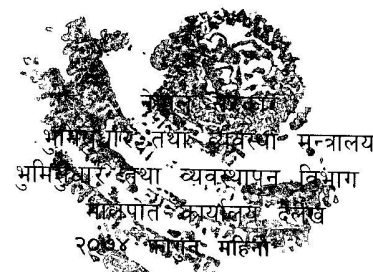 नेपाल सरकार
भुमिसुधार तथा व्यवस्था मन्त्रालय
भुमिसुधार तथा व्यवस्थापन विभाग
मालपोत कार्यालय, दैलेख
२०७४ फागुन महिना